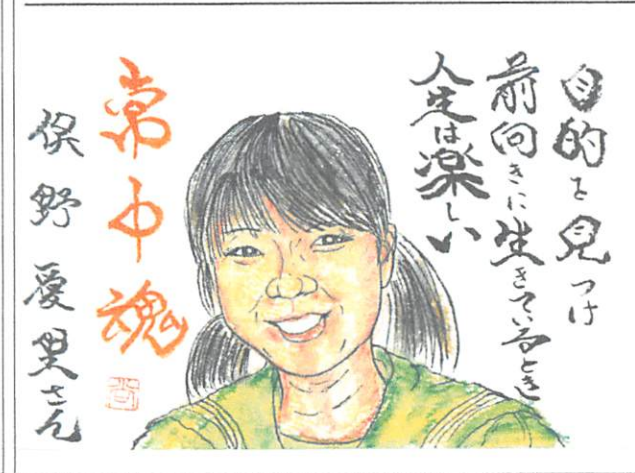 目的を見つけ
前向きに生きているとき
人生は楽しい
常中魂
俣野愛里さん